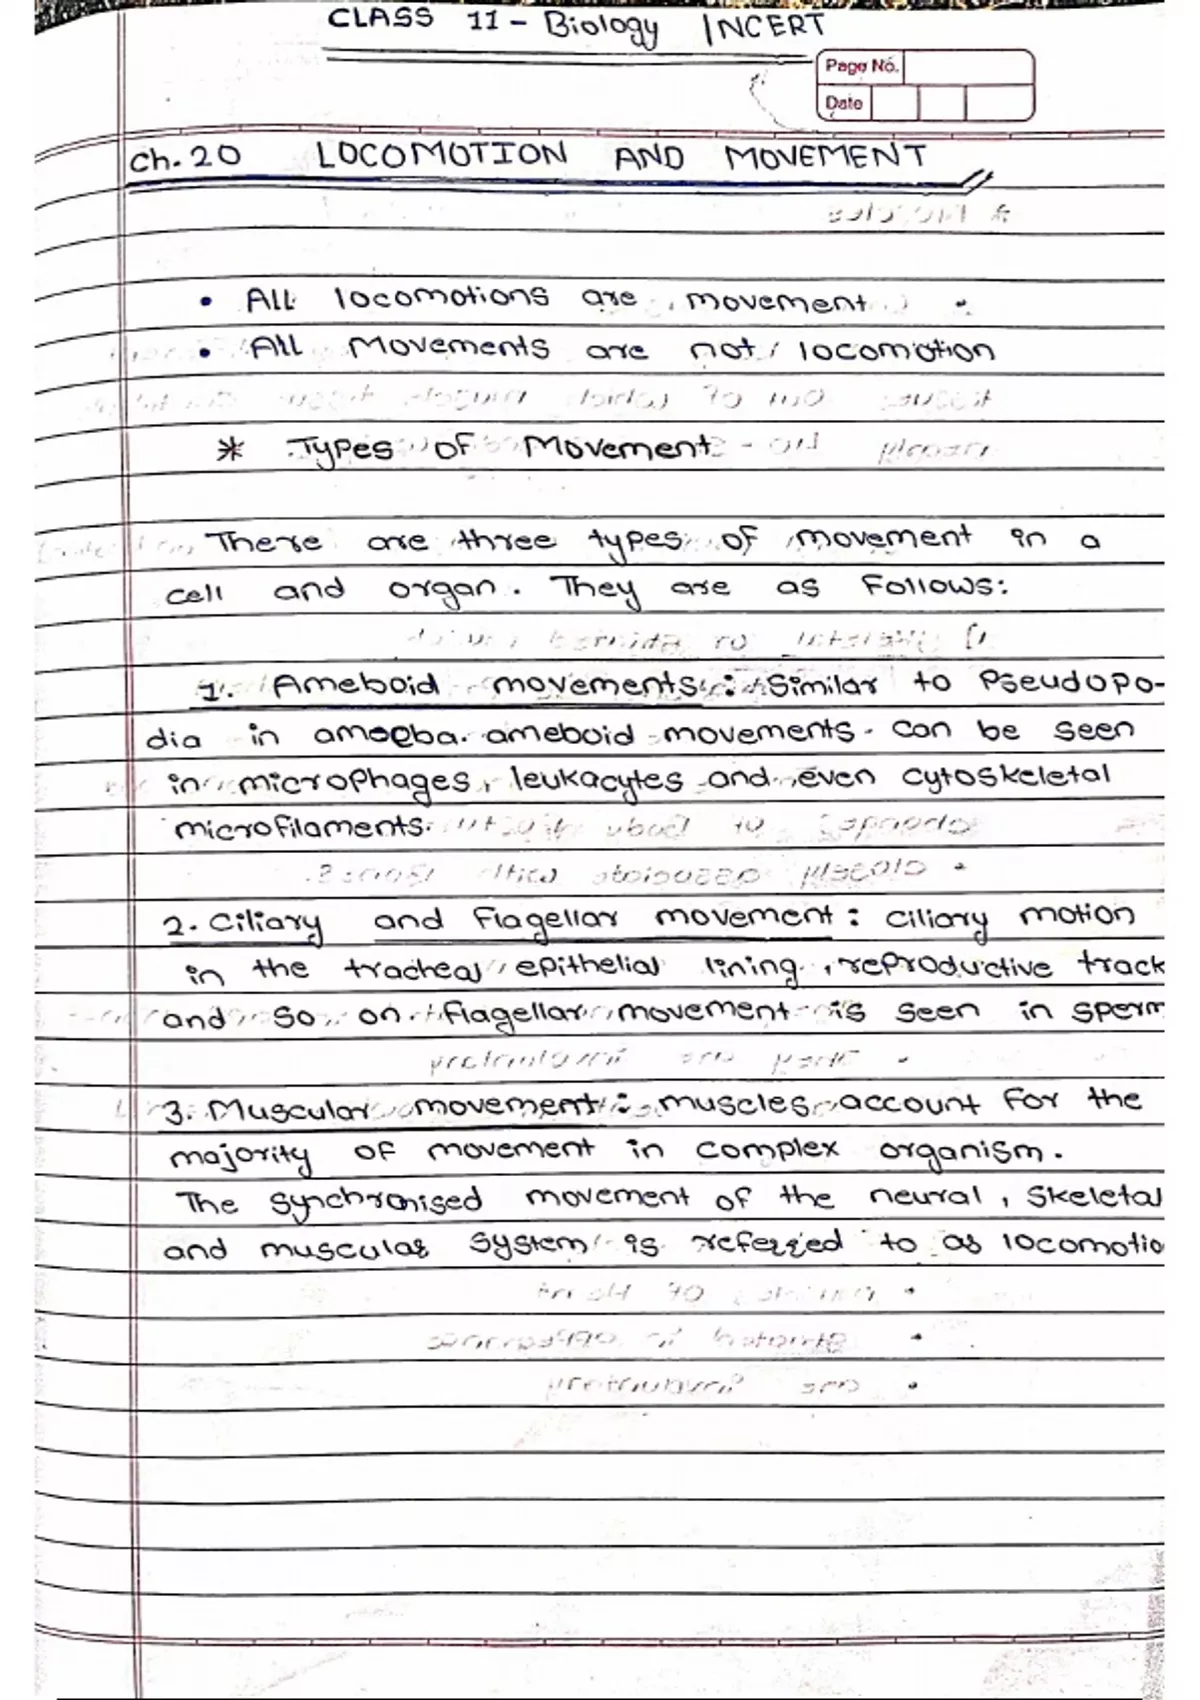 CLASS 11 - Biology NCERT
Page No.
Date
Ch. 20 LOCOMOTION AND MOVEMENT
• All locomotions are movement.
• All Movements are not locomotion
* Types of Movement
There are three types of movement in a
cell and organ. They are as follows:
1. Ameboid movements: Similar to Pseudopo-
dia in amoeba. ameboid movements. can be seen
in microphages, leukacytes and even cytoskeletal
microfilaments.
2. Ciliary and Flagellar movement: ciliary motion
in the tracheal, epithelial lining, reproductive track
and so on. flagellar movement is seen in sperm
3. Muscular movement: muscles account for the
majority of movement in complex organism.
The synchronised movement of the neural, skeletal
and muscular system is referred to as locomotio